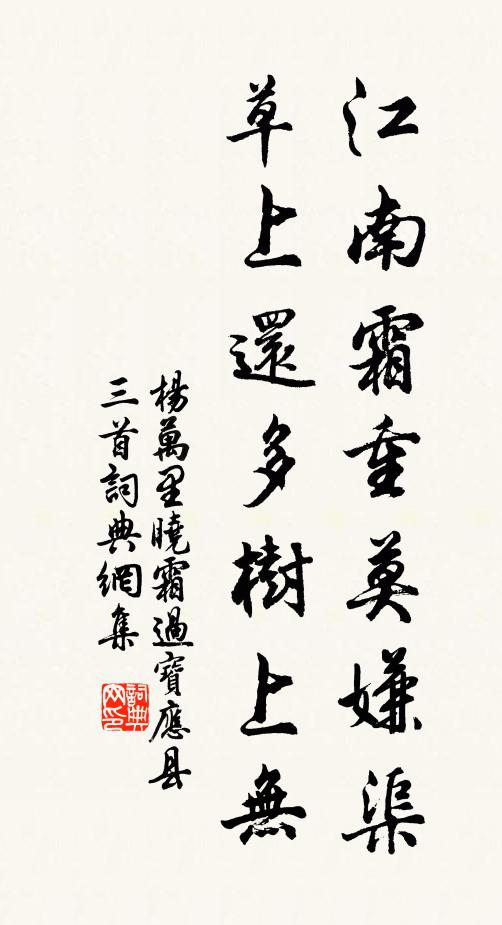 江南霜重莫嫌渠
草上還多樹上無
楊萬里曉霜過寶應县
三首詞典網集
詞典
网印